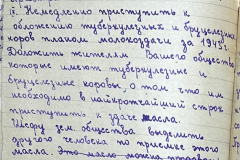 5. Немедленно приступить к
обложению туберкулезных и бруцелезных
коров планом молокосдачи за 1945 г.
Доложить жителям Вашего общества
которые имеют туберкулезние и
бруцелезние коровы, о том что им
необходимо в найкротчайший строк
приступить к здаче масла.
Шефу зем общества выделить
другого человека по приемке этого
масла. Это масло можна